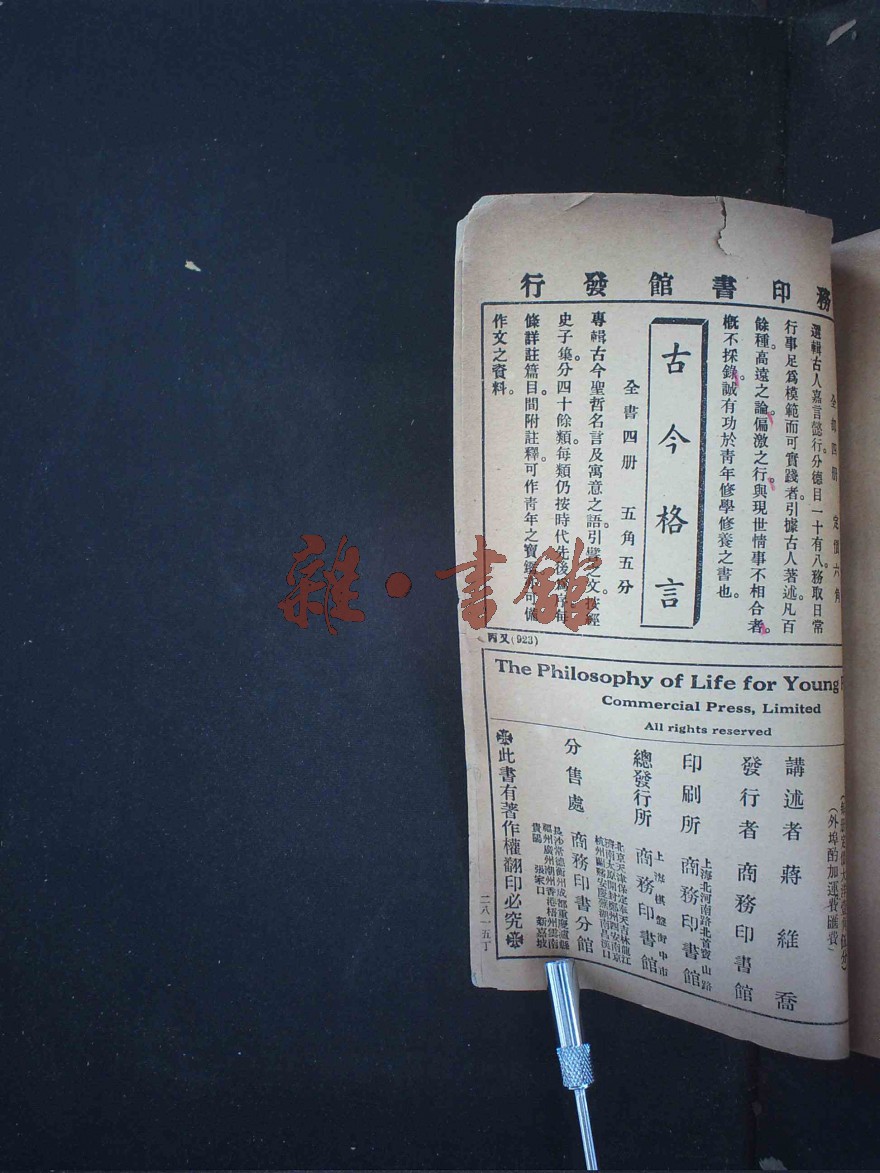 務印書館發行
全書四册 定價六角
選輯古人嘉言懿行。分德目一十有八務取日常
行事足爲模範而可實踐者。引據古人著述凡百
餘種。高遠之論。偏激之行。與現世情事不相合者。
概不採錄。誠有功於靑年修學修養之書也。
古今格言
全書四册 五角五分
專輯古今聖哲名言及寓意之語。引譬之文。按經
史子集。分四十餘類。每類仍按時代先後
條詳註篇目。間附註釋。可作靑年之寶
作文之資料。
丙又(923)
The Philosophy of Life for Young
Commercial Press, Limited
All rights reserved
(外埠酌加運費匯費)
講述者 蔣維喬
發行者 商務印書館
印刷所 上海北河南路北首寶山路 商務印書館
總發行所 上海棋盤街中市 商務印書館
分售處 北京天津保定奉天吉林龍江
濟南太原開封鄭州西安南京
杭州蘭谿安慶蕪湖南昌漢口
商務印書分館
長沙常德衡州成都重慶瀘縣
福州廣州潮州香港梧州雲南
貴陽 張家口 新嘉坡
此書有著作權翻印必究
二八一五丁
雜·書館